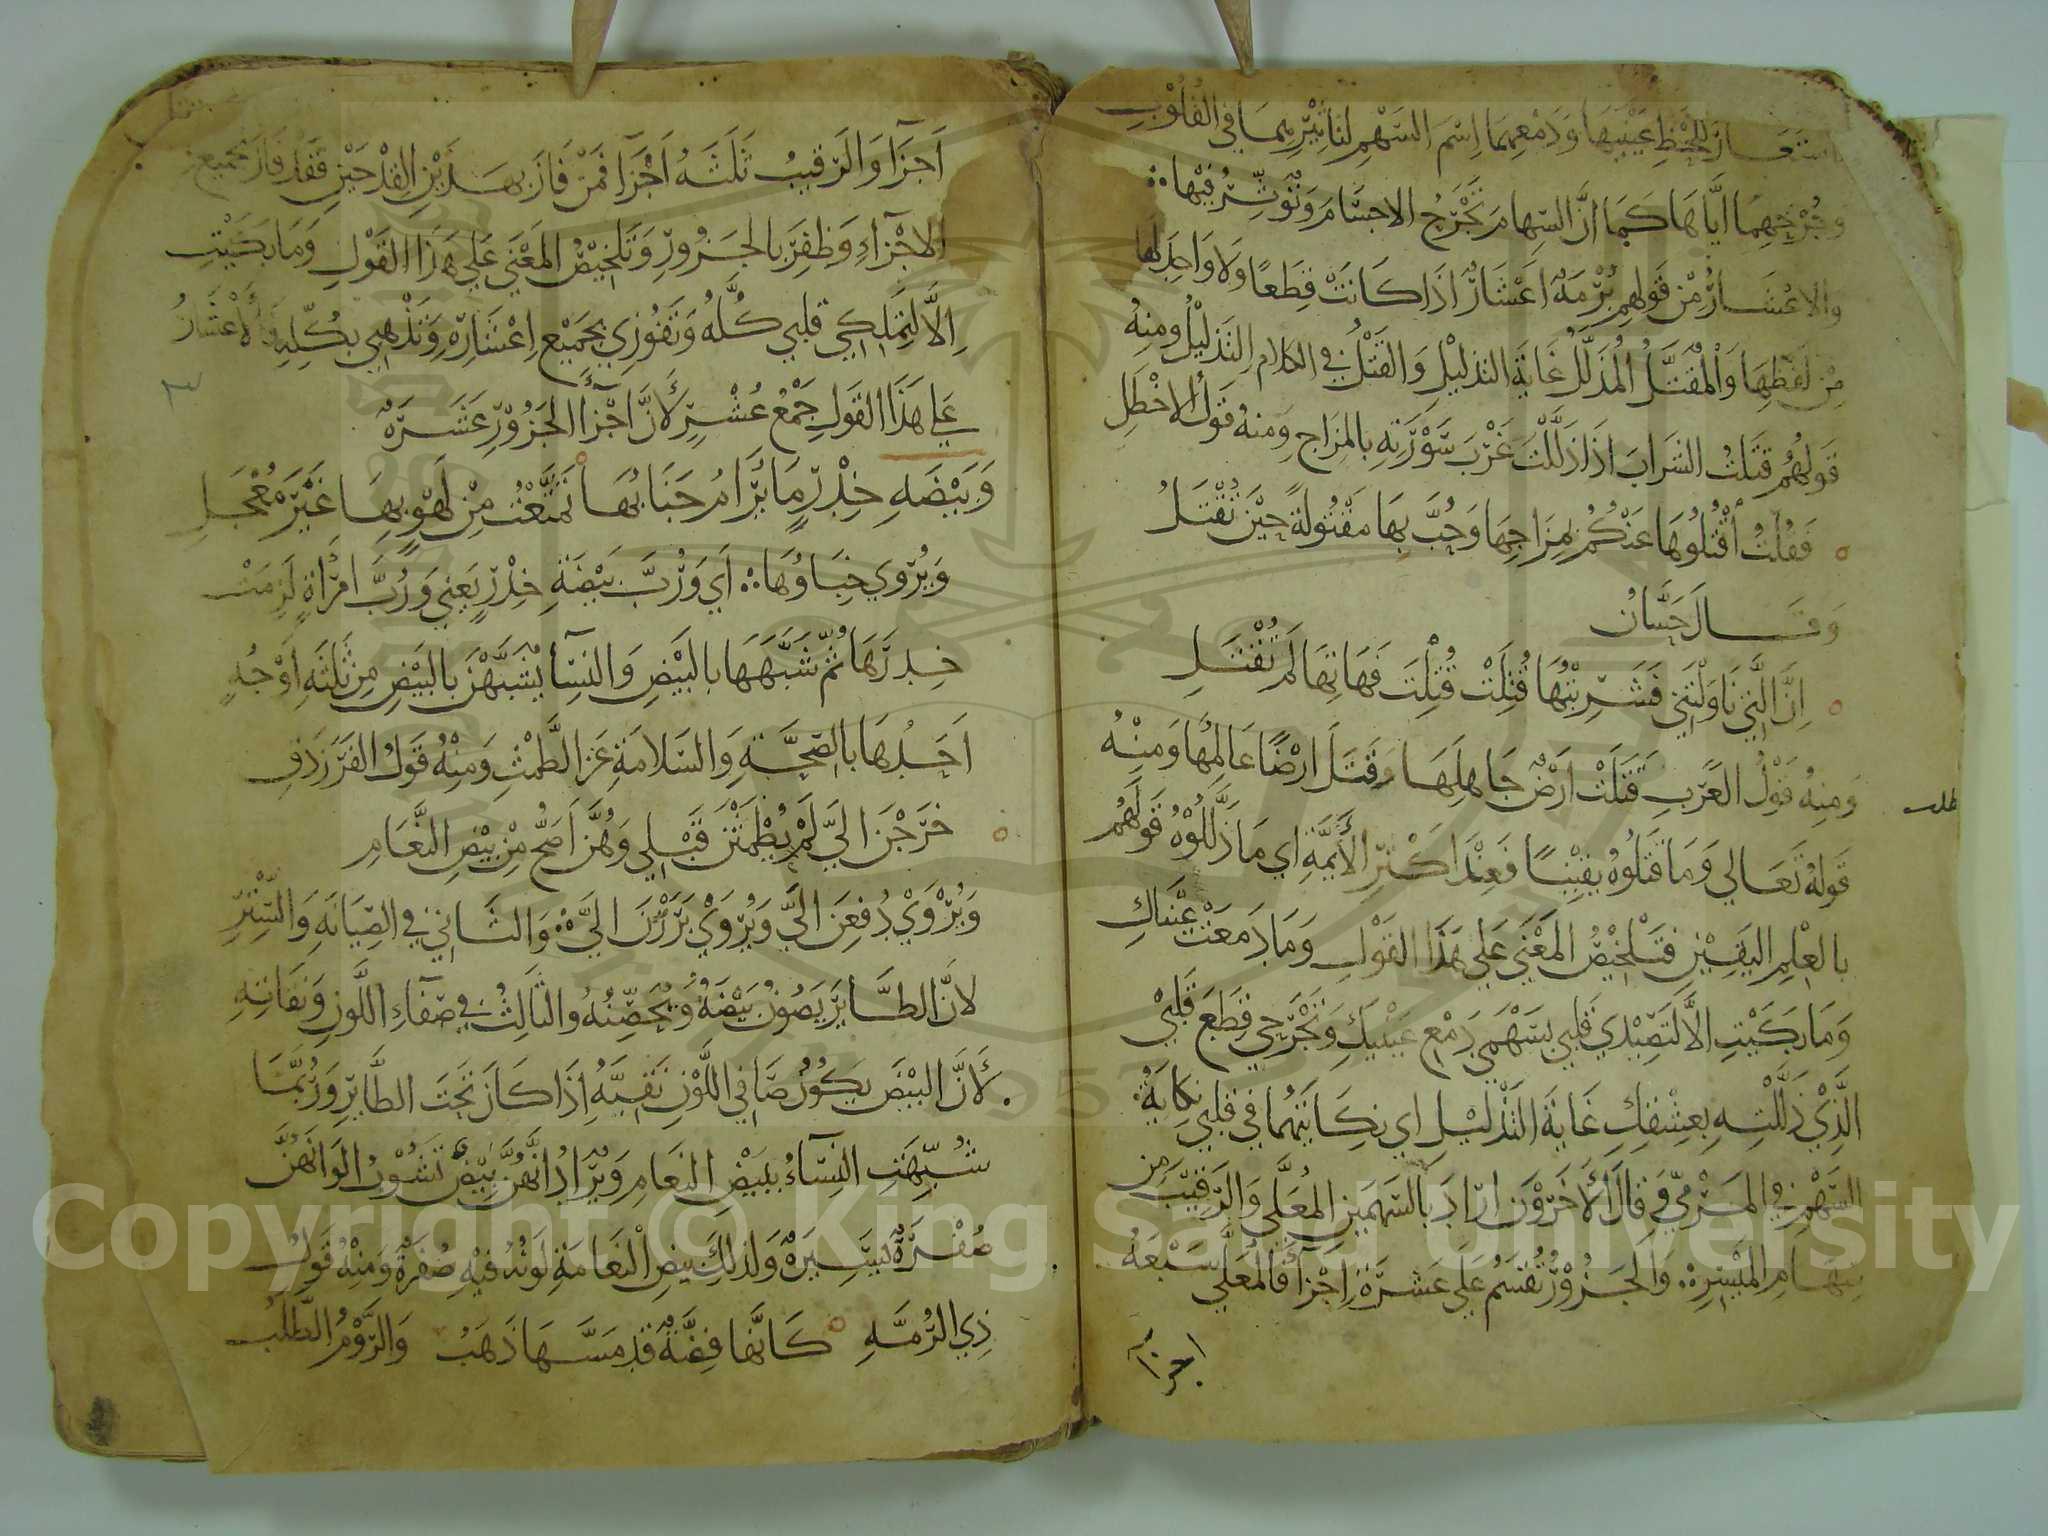 استعار للحظ عينيها ودمعهما اسم السهم لتاثيرهما في القلوب
وجرحهما اياها كما ان السهام تجرح الاجسام وتوثر فيها
والاعشار من قولهم برمة اعشار اذا كانت قطعا ولا واحد لها
من لفظها والمقتل المذلل غاية التذليل والقتل في الكلام التذليل ومنه
قولهم قتلت الشراب اذا ذللت غرب سورته بالمزاج ومنه قول الاخطل
فقلت اقتلوها عنكم بمزاجها وحب بها مقتولة حين تقتل
وقال حسان
ان التي ناولتني فشربتها قتلت قتلت فهاتها لم تقتل
ومنه قول العرب قتلت ارض جاهلها وقتل ارضا عالمها ومنه
طلب
قوله تعالي وما قتلوه يقينا فعند اكثر الأيمة اي ما ذللوه قولهم
بالعلم اليقين فتلخيص المعني علي هذا القول وما دمعت عيناك
وما بكيت الا لتصيدي قلبي بسهمي دمع عينيك وتجرحي قطع قلبي
الذي ذللته بعشقك غاية التذليل اي نكايتهما في قلبي نكاية
السهم في المرمي وقال الأخرون اراد بالسهمين المعلي والرقيب من
سهام الميسر والجزور تقسم علي عشرة اجزآ فالمعلي سبعة
اجزا
اجزآ والرقيب ثلثة اجزآ فمن فاز بهذين القدحين فقد فاز بجميع
الاجزآء وظفر بالجزور وتلخيص المعني علي هذا القول وما بكيت
الا لتملكي قلبي كله وتفوزي بجميع اعشاره وتذهبي بكله والأعشار
علي هذا القول جمع عشر لأن اجزآ الجزور عشرة
وبيضة خدر ما يرام خباؤها تمتعت من لهو بها غير معجل
ويروي خباؤها اي ورب بيضة خدر يعني ورب امرأة لزمت
خدرها ثم شبهها بالبيض والنسآ يشبهن بالبيض من ثلثة اوجه
احدها بالصحة والسلامة عن الطمث ومنه قول الفرزدق
خرجن الي لم يطمثن قبلي وهن اصح من بيض النعام
ويروي دفعن الي ويروي برزن الي والثاني في الصيانة والستر
لان الطاير يصون بيضه ويحصنه والثالث في صفآء اللون ونقاته
لأن البيض يكون صافي اللون نقيه اذا كان تحت الطاير وربما
شبهت النسآء ببيض النعام ويراد انهن بيض تشوب الوانهن
صفرة يسيرة ولذلك بيض النعامة لونه فيه صفرة ومنه قول
ذي الرمة كانها فضة قد مسها ذهب والروم الطلب
Copyright © King Saud University